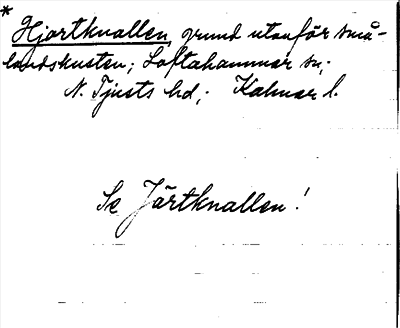 * Hjortknallen, grund utanför små-
landskusten; Loftahammar sn;
N. Tjusts hd; Kalmar l.
Se Järtknallen!